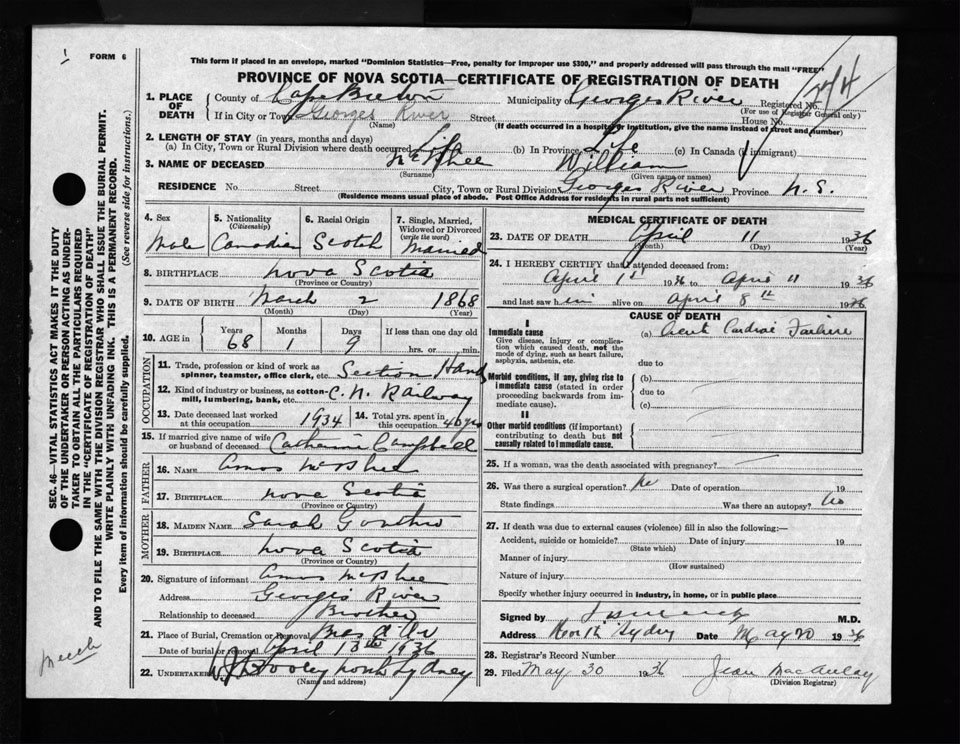 FORM 6
This form if placed in an envelope, marked "Dominion Statistics—Free, penalty for improper use $300," and properly addressed will pass through the mail "FREE"
PROVINCE OF NOVA SCOTIA—CERTIFICATE OF REGISTRATION OF DEATH
1. PLACE OF DEATH County of Cape Breton Municipality of Georges River Registered No.
(For use of Registrar General only)
If in City or Town Georges River Street House No.
(Name) (If death occurred in a hospital or institution, give the name instead of street and number)
2. LENGTH OF STAY (in years, months and days)
(a) In City, Town or Rural Division where death occurred Life (b) In Province Life (c) In Canada (if immigrant)
3. NAME OF DECEASED McPhee William
(Surname) (Given name or names)
RESIDENCE No. Street City, Town or Rural Division Georges River Province N.S.
(Residence means usual place of abode. Post Office Address for residents in rural parts not sufficient)
4. Sex Male
5. Nationality (Citizenship) Canadian
6. Racial Origin Scotch
7. Single, Married, Widowed or Divorced (write the word) Married
8. BIRTHPLACE Nova Scotia
(Province or Country)
9. DATE OF BIRTH March 2 1868
(Month) (Day) (Year)
10. AGE in Years Months Days If less than one day old
68 1 9 hrs. or min.
OCCUPATION
11. Trade, profession or kind of work as spinner, teamster, office clerk, etc. Section Hand
12. Kind of industry or business, as cotton-mill, lumbering, bank, etc. C.N. Railway
13. Date deceased last worked at this occupation 1934
14. Total yrs. spent in this occupation 40 yrs
15. If married give name of wife or husband of deceased Catherine Campbell
FATHER
16. NAME Amos McPhee
17. BIRTHPLACE Nova Scotia
(Province or Country)
MOTHER
18. MAIDEN NAME Sarah
19. BIRTHPLACE Nova Scotia
(Province or Country)
20. Signature of informant Amos McPhee
Address Georges River
Relationship to deceased Brother
21. Place of Burial, Cremation or Removal
Date of burial or removal April 13th 1936
22. Undertaker Dooley North Sydney
(Name and address)
MEDICAL CERTIFICATE OF DEATH
23. DATE OF DEATH April 11 1936
(Month) (Day) (Year)
24. I HEREBY CERTIFY that I attended deceased from:
April 1st 1936 to April 11 1936
and last saw him alive on April 8th 1936
CAUSE OF DEATH
I
Immediate cause
Give disease, injury or complication which caused death, not the mode of dying, such as heart failure, asphyxia, asthenia, etc.
(a) Acut Cardiac Failure
due to
Morbid conditions, if any, giving rise to immediate cause (stated in order proceeding backwards from immediate cause).
(b)
due to
(c)
II
Other morbid conditions (if important) contributing to death but not causally related to immediate cause.
25. If a woman, was the death associated with pregnancy?
26. Was there a surgical operation? No Date of operation 19
State findings Was there an autopsy? No
27. If death was due to external causes (violence) fill in also the following:—
Accident, suicide or homicide? Date of injury 19
(State which)
Manner of injury
(How sustained)
Nature of injury
Specify whether injury occurred in industry, in home, or in public place
Signed by M.D.
Address North Sydney Date May 20 1936
28. Registrar's Record Number
29. Filed May 30 1936 Jean MacAulay
(Division Registrar)
SEC. 46—VITAL STATISTICS ACT MAKES IT THE DUTY
OF THE UNDERTAKER OR PERSON ACTING AS UNDER-
TAKER TO OBTAIN ALL THE PARTICULARS REQUIRED
IN THE "CERTIFICATE OF REGISTRATION OF DEATH"
AND TO FILE THE SAME WITH THE DIVISION REGISTRAR WHO SHALL ISSUE THE BURIAL PERMIT.
WRITE PLAINLY WITH UNFADING INK. THIS IS A PERMANENT RECORD.
Every item of information should be carefully supplied. (See reverse side for instructions.)